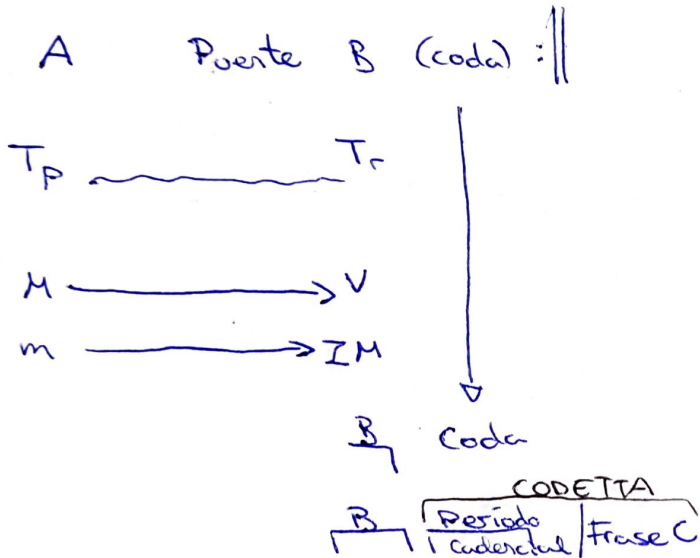 A Puente B (coda) :||
Tp Tr
M V
m IM
B Coda
CODETTA
B Período Cadencial Frase C